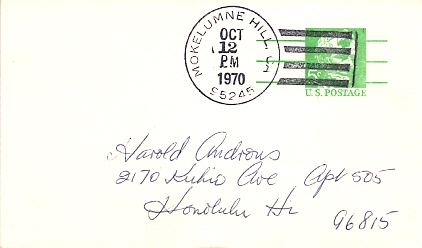 MOKELUMNE HILL, CA
OCT
12
PM
1970
95245
U.S. POSTAGE
Harold Androus
2170 Kuhio Ave Apt 505
Honolulu Hi
96815